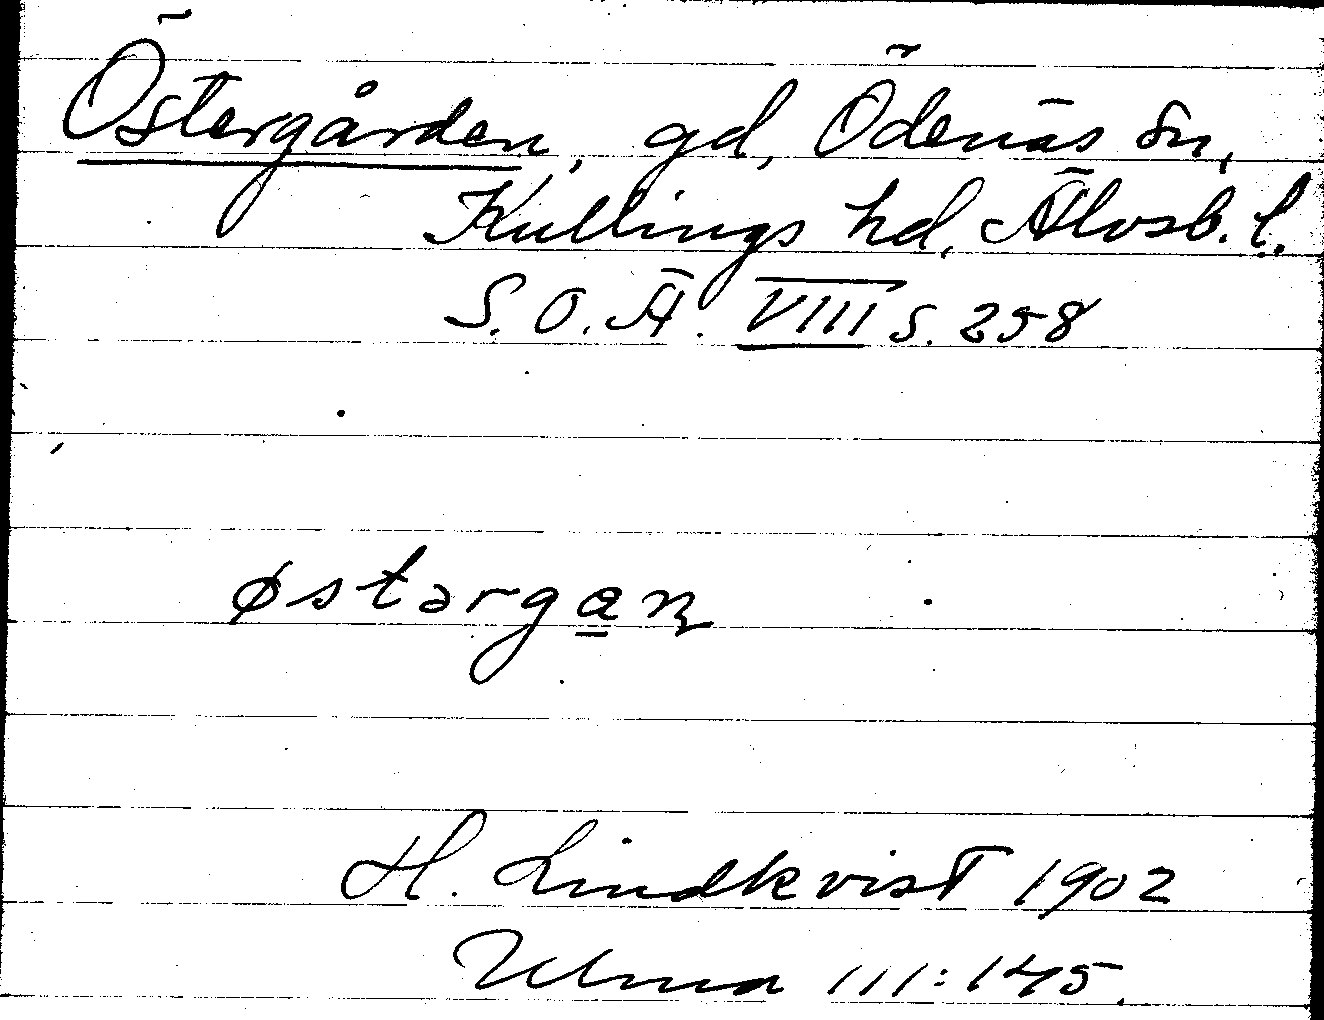 Östergården, gd, Ödenäs sn,
Kullings hd, Älvsb. l.
S. O. Ä. VIII s. 258
østərgan
H. Lindkvist 1902
Ulma 111:145.